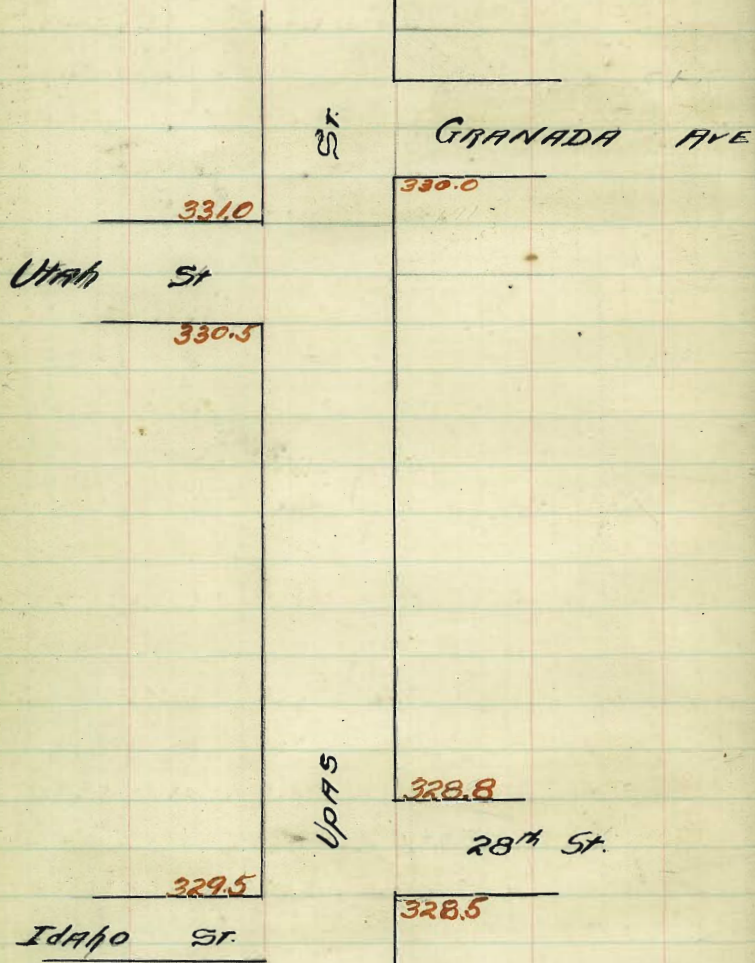 St.
GRANADA AVE
330.0
331.0
Utah St
330.5
UpAS
328.8
28th St.
329.5
328.5
IdAho ST.